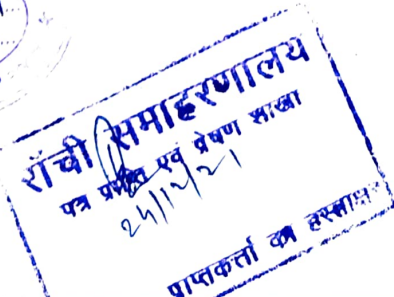 राँची समाहरणालय
पत्र प्राप्ति एवं प्रेषण शाखा
24/12/21
प्राप्तकर्त्ता का हस्ताक्षर